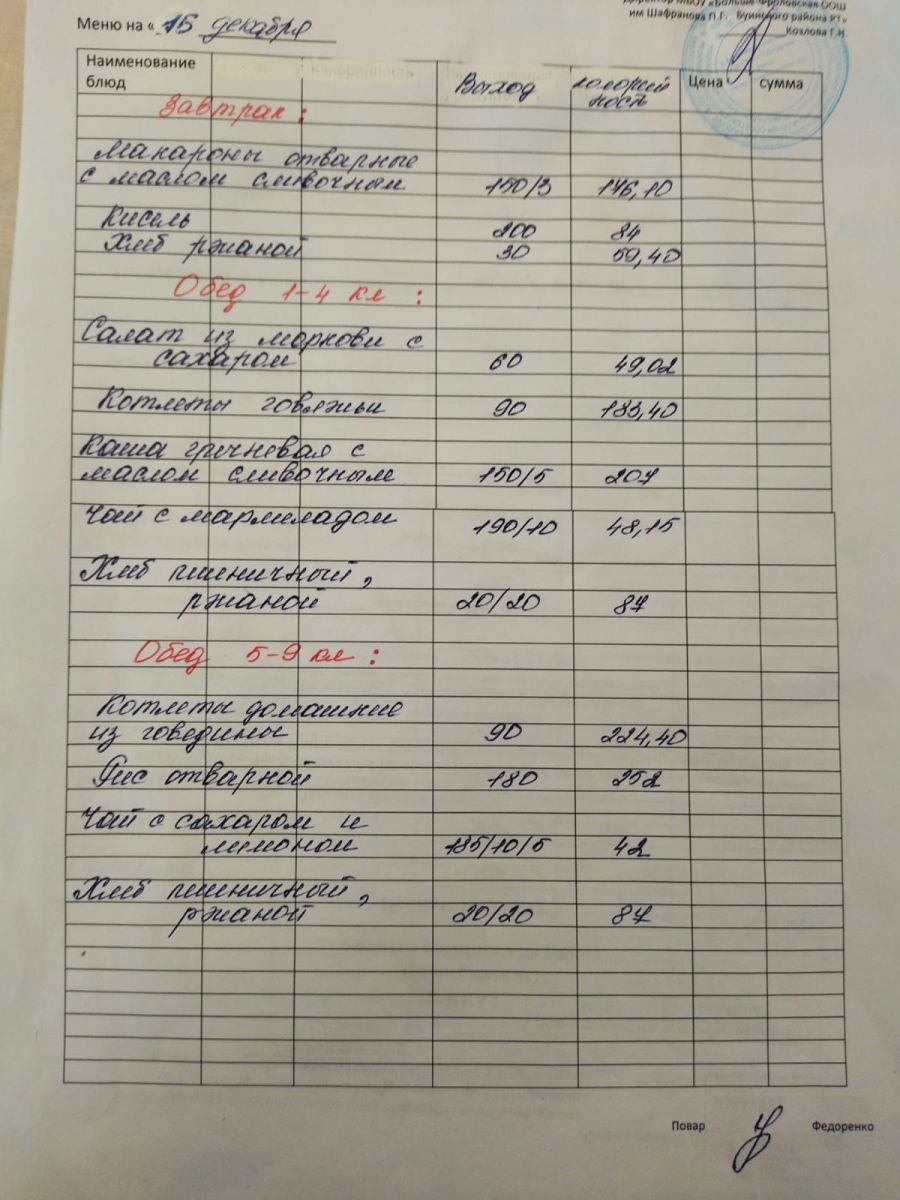 Директор МБОУ «Больше-Фроловская ООШ
им Шафранова П.Г. Буинского района РТ»
Козлова Г.И.
Меню на « 15 декабря
Наименование блюд Выход калорий ность Цена сумма
Завтрак :
Макароны отварные
с маслом сливочным 150/3 176,10
Кисель 200 84
Хлеб ржаной 30 59,40
Обед 1-4 кл :
Салат из моркови с
сахаром 60 49,02
Котлеты говяжьи 90 183,40
Каша гречневая с
маслом сливочным 150/5 207
Чай с мармиладом 190/10 48,15
Хлеб пшеничный,
ржаной 20/20 87
Обед 5-9 кл :
Котлеты домашние
из говедины 90 224,40
Рис отварной 180 252
Чай с сахаром и
лимоном 185/10/5 42
Хлеб пшеничный,
ржаной 20/20 87
Повар Федоренко